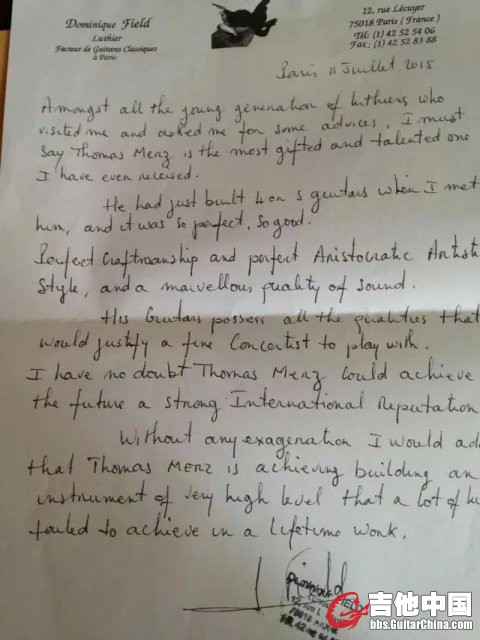 Dominique Field
Luthier
Facteur de Guitares Classiques
à Paris
12, rue Lécuyer
75018 Paris ( France )
Tél: (1) 42 52 54 06
Fax: (1) 42 52 83 88
Paris 11 Juillet 2015
Amongst all the young generation of luthiers who
visited me and asked me for some advices, I must
say Thomas Merz is the most gifted and talented one
I have ever received.
He had just built 4 or 5 guitars when I met
him, and it was so perfect, so good.
Perfect Craftmanship and perfect Aristocratic Artistic
Style, and a marvellous quality of sound.
His Guitars possess all the qualities that
would justify a fine Concertist to play with.
I have no doubt Thomas Merz could achieve
the future a strong International Reputation
Without any exageration I would ad
that Thomas Merz is achieving building an
instrument of very high level that a lot of
failed to achieve in a lifetime work.
Dominique
FIELD
吉他中国
bbs.GuitarChina.com